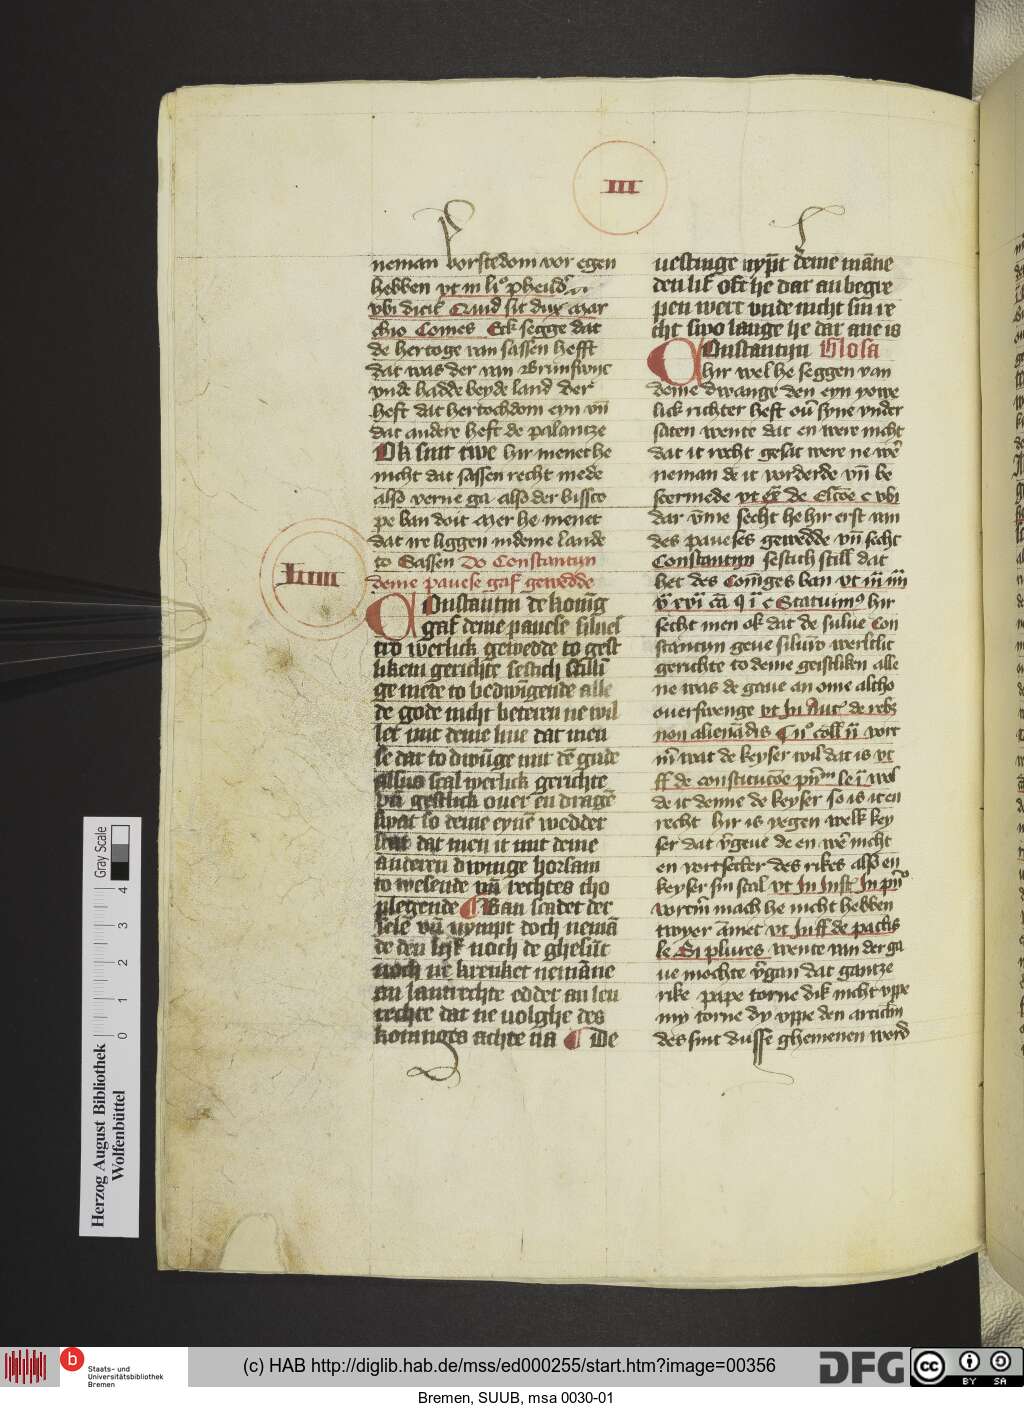 III
neman vorstedom vor egen
hebben vt in li° pheud°
vbi dicit Quid sit dux Mar
chio Comes Eck segge dat
de hertoge van sassen hefft
dat was der van Brunswic
vnde hadde beyde land der
heft dat hertochdom eyn vn̄
dat andere heft de palantze
Ok sint twe hir menet he
nicht dat sassen recht mede
also verne ga also der bissco
pe ban doit Mer he menet
dat ire liggen in deme lande
to Sassen Do Constantyn
deme pauese gaf gewedde
LIIII
Constantin de konīg
gaf deme pauese siluest
tro werlick gewedde to gest
likem gerichte sestich scillī
ge mede to bedwīgende alle
de gode nicht beteren ne wil
let mit deme liue dat men
se dat to dwīge mit dē gude
alsus scal werlick gerichte
vn̄ gestlick ouer en dragē
swat so deme eynē wedder
steit dat men it mit deme
anderen dwinge horsam
to wesende vn̄ rechtes tho
plegende ¶ Ban scadet der
selē vn̄ nympt doch nemā
de den lyf noch de ghesūt
noch ne krenket nemāne
an lantrechte edder an len
rechte dat ne volghe des
koninges achte na ¶ De
uestinge nyp̄t deme māne
den lif oft he dar an begre
pen wert vnde nicht sin re
cht swo lange he dar ane is
Constantyn Glosa
hir wel he seggen van
deme dwange den eyn yowe
lick richter heft ou̅ syne vnder
saten wente dat en were nicht
dat it recht gesat were ne wē
neman de it vorderde vn̄ be
scermede vt ex̄ de Elc̄oe c vbi
dar v̄me secht he hir erst van
des paueses gewedde vn̄ secht
Constantyn sestich still dat
het des Con̄īges ban vt in iii
hir
secht men ok dat de sulue Con
stantyn geue siluīo werltlic
gerichte to deme geistliken alle
ne was de gaue an ome altho
ouerswenge vt In Aut de rebz
non alienādis C n° coll ii wit
m̄ wat de keyser wil dat is vt
ff de constitucōe pn̄m le i wol
de it denne de keyser so is it en
recht hir is vegen welk key
ser dat v̄geue de en wē nicht
en vortsetter des rikes also en
keyser sin scal vt In Inst In pn̄°
vortm̄ mach he nicht hebben
twyer āmet vt In ff de pactis
le Si plures wente van der ga
ue mochte v̄gan dat gantze
rike pape torne dik nicht vppe
my torne dy vppe den articklin
des sint dusse ghemenen word
Herzog August Bibliothek
Wolfenbüttel
0 1 2 3 4
Gray Scale
b
Staats- und
Universitätsbibliothek
Bremen
(c) HAB http://diglib.hab.de/mss/ed000255/start.htm?image=00356
DFG
cc BY SA
Bremen, SUUB, msa 0030-01